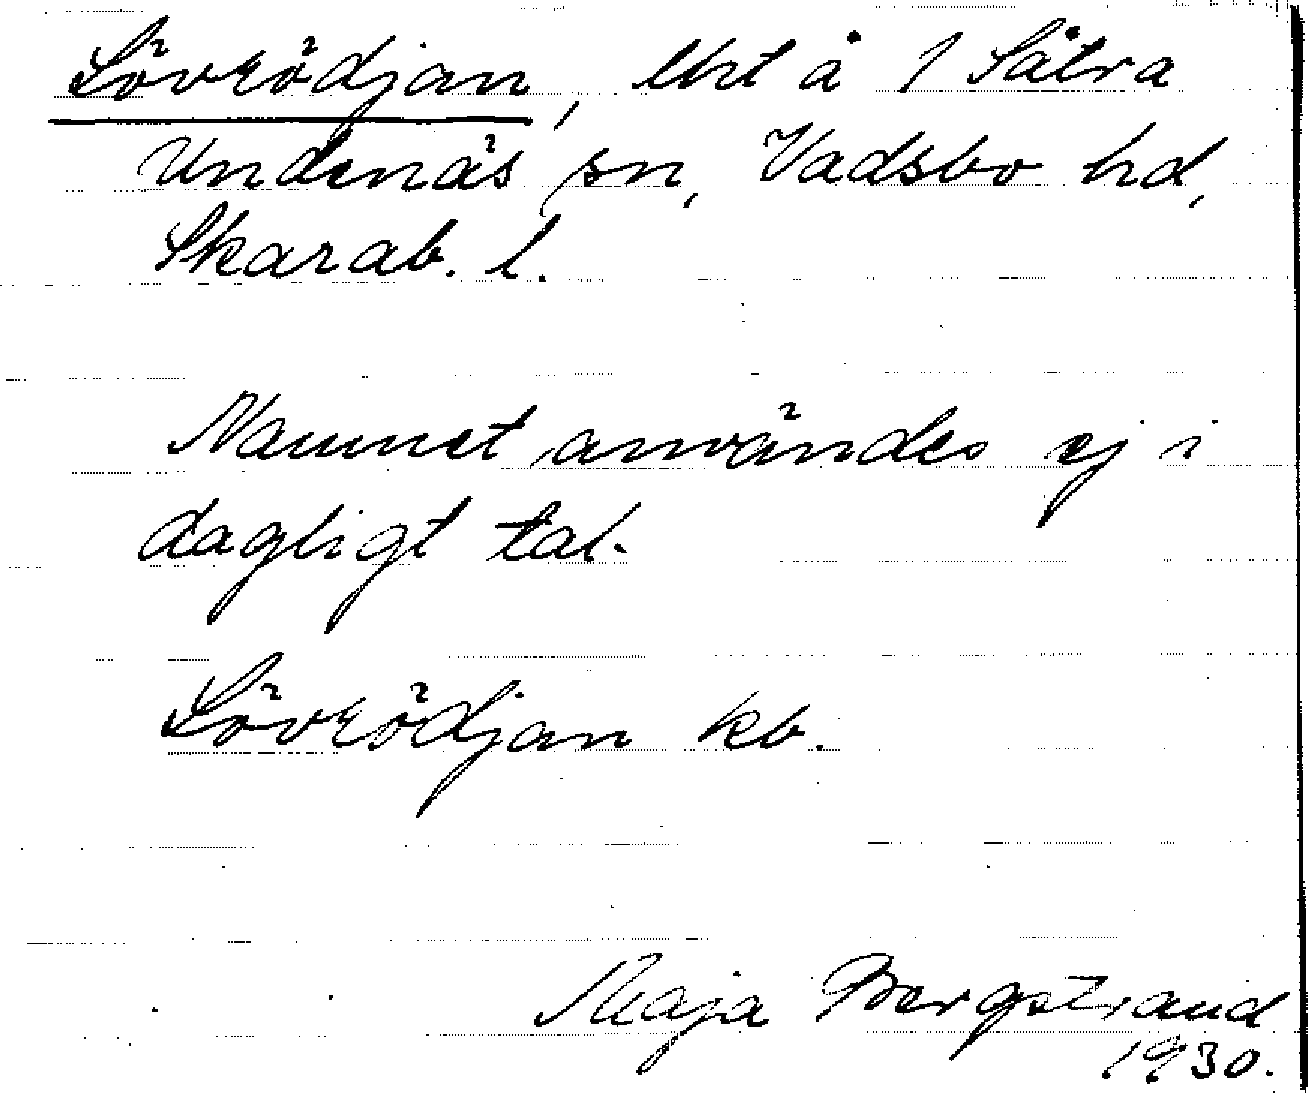 Lövrödjan, Urt å 1 Sätra
Undenäs sn, Vadsbo hd,
Skarab. l.
Namnet användes ej i
dagligt tal.
Lövrödjan kb.
Maja Bergstrand
1930.